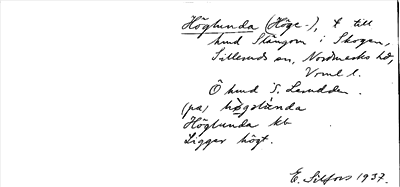 Höglunda (Höge-), t till
hmd Stångom i Skogen,
Silleruds sn, Nordmarks hd,
Vrml l.
Ö hmd S. Lerudden.
(pa) høgslùnda
Höglunda kb
Ligger högt.
E. Silfors 1937.